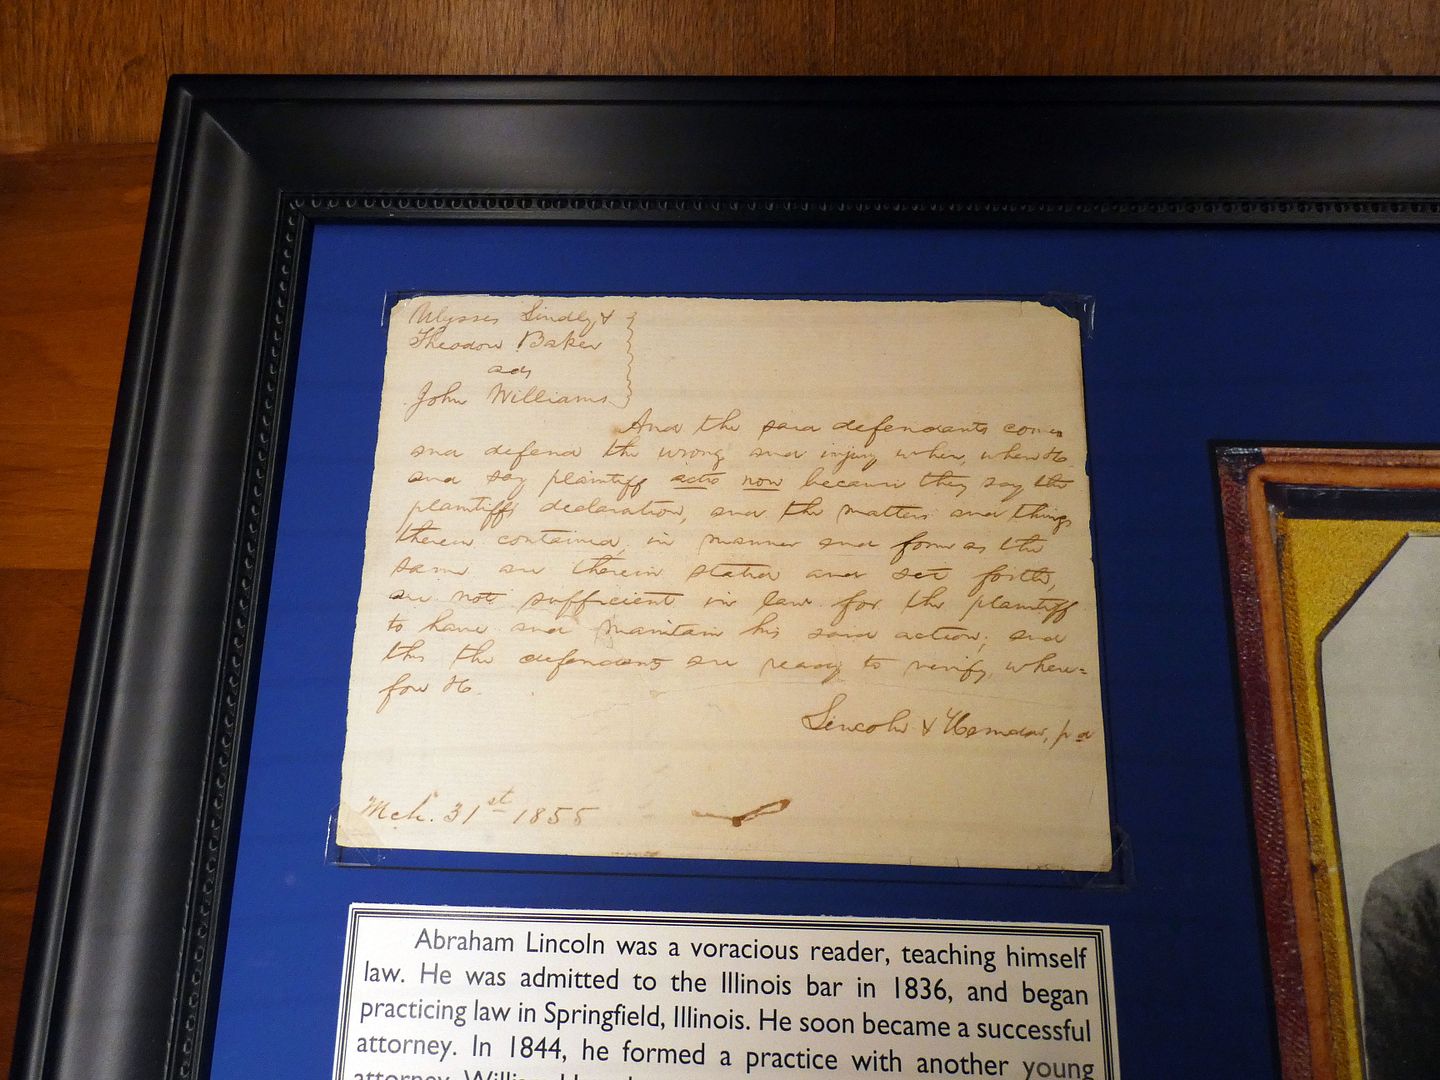 Ulysses Lindly &
Theodore Baker
ads
John Williams
And the said defendants comes
and defend the wrong and injury when, where &c
and say plaintiff actio non because they say the
plaintiffs declaration, and the matters and things
therein contained, in manner and form as the
same are therein stated and set forth,
are not sufficient in law for the plaintiff
to have and maintain his said action; and
this the defendants are ready to verify, where=
fore &c.
Lincoln & Herndon, p d
Mch. 31st 1855
Abraham Lincoln was a voracious reader, teaching himself
law. He was admitted to the Illinois bar in 1836, and began
practicing law in Springfield, Illinois. He soon became a successful
attorney. In 1844, he formed a practice with another young
attorney, William